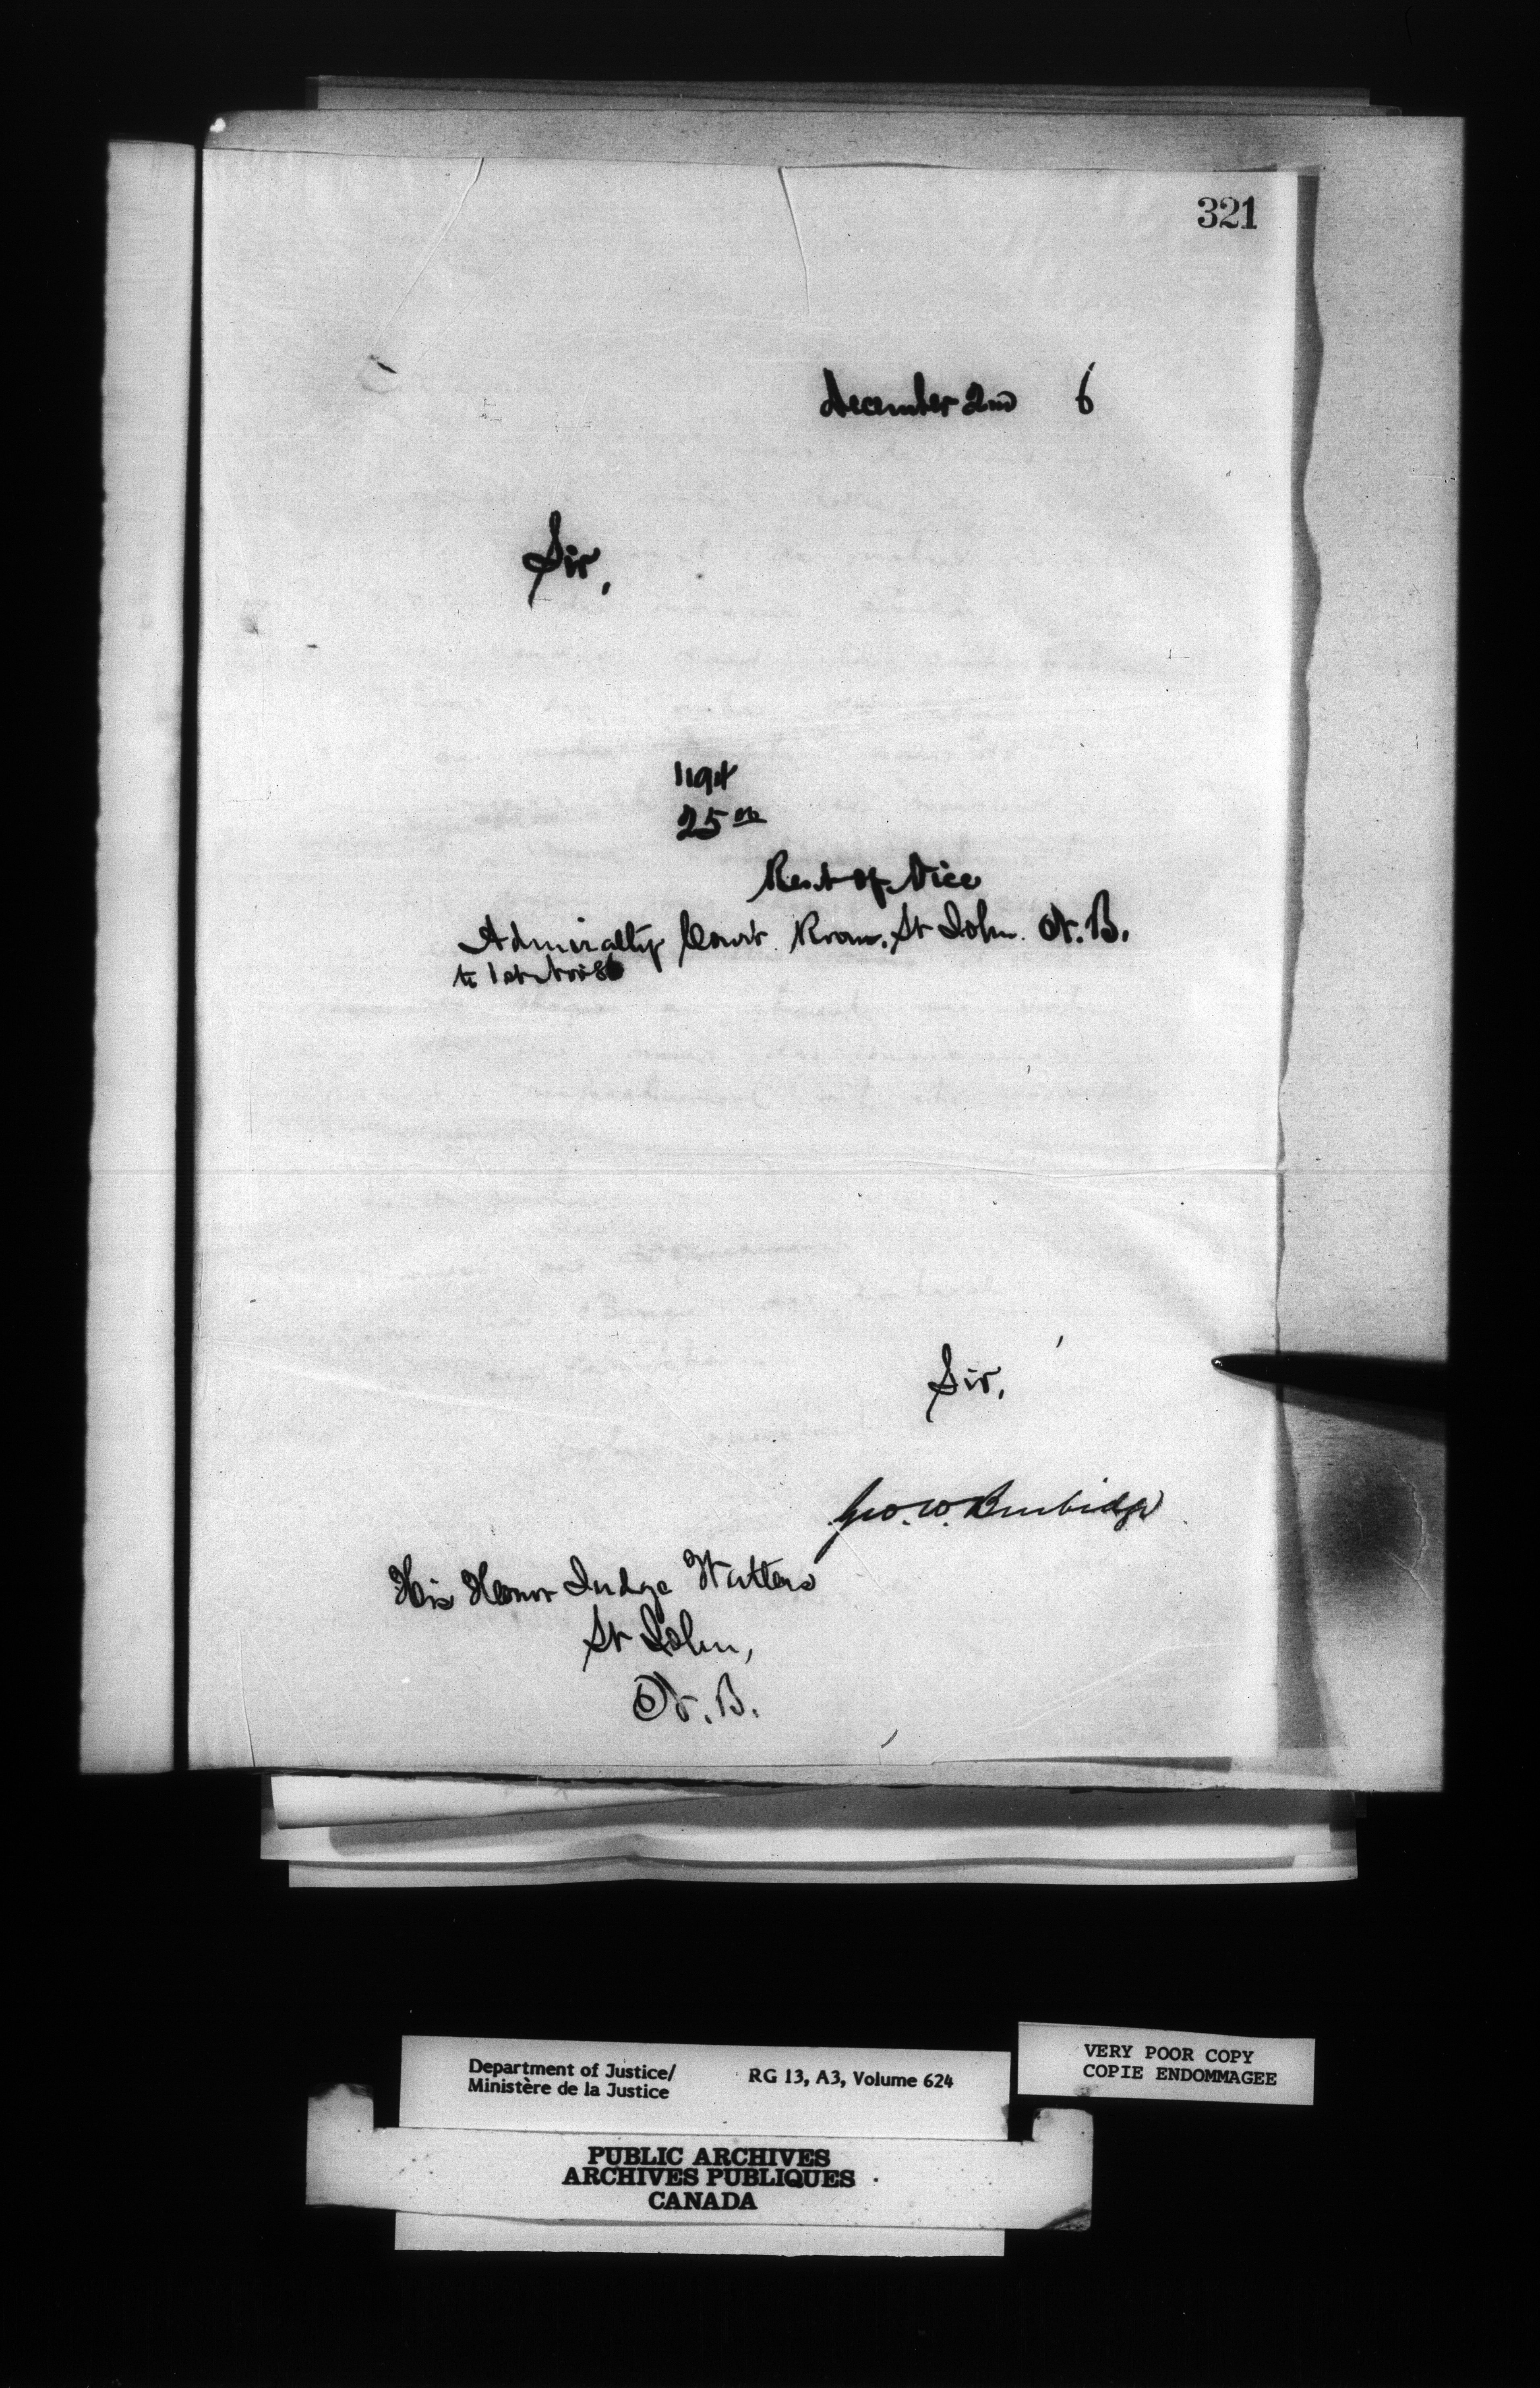 321
December 2nd 6
Sir,
1194
25 00
Rent of Vice
Admiralty Court Room, St John. N. B.
to 1st Nov 86
Sir,
Geo. W. Burbidge
His Honor Judge Watters
St John,
N. B.
Department of Justice/
Ministère de la Justice
RG 13, A3, Volume 624
VERY POOR COPY
COPIE ENDOMMAGEE
PUBLIC ARCHIVES
ARCHIVES PUBLIQUES
CANADA